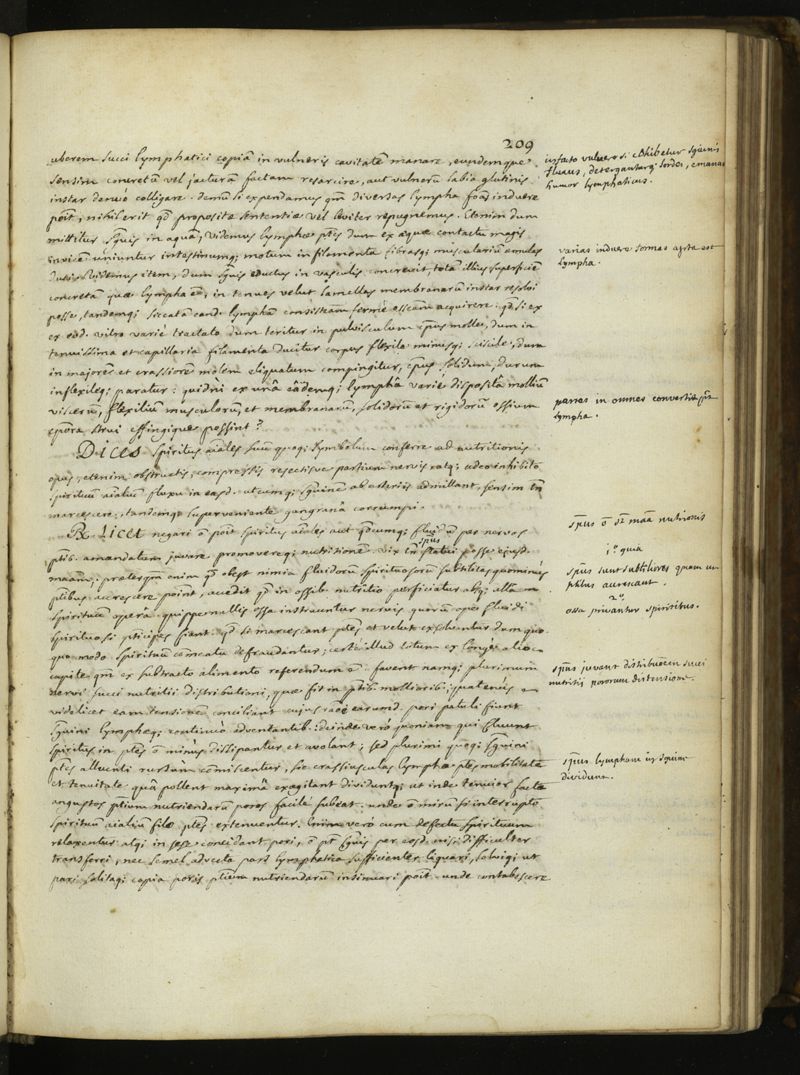 209
uberem succi lymphatici copiã in vulneris cavitatẽ manare, eundemque
sensim concretũ vel jacturã factam resarcire, aut vulnerũ labia glutinis
instar denuo colligare. demũ si expendamus qm̃ diversas lympha for̃as induere
põit, nihil erit qđ propositæ sententiæ vel leviter repugnemus. Etenim dum
mittitur sg̃uis in aquã, videmus lymphæ ptẽs dum ex aquæ contactu magis
invicẽ uniuntur intestinumq; motum in filamenta fibrasq; musculariũ æmulas
videmus item, dum sg̃uis eductus in vasculis concrevit, totã illius superficiẽ
concretam quæ lympha ẽ, in tenues velut lamellas membranarũ instar resolvi
posse, tandemq; siccatã eand. lympham consistentiam fermè osseam acquirere. qđ si ex
eod. vitro variè tractato dum teritur in pulvisculum molle, dum in
tenuissima et capillaria filamenta ducitur corpus flexile minusq; scissile, dum
in majorem et crassiorẽ molem eliquatum compingitur, solidum, durum
inflexileq; paratur: quidni ex unâ eâdemq; lymphâ variè dispositâ mollium
viscerũ, flexilium musculorum, et membranarum, solidorũ et rigidorũ ossium
corpora strui effingique possint?
Dices spiritus aĩales suũ quoq; symbolum conferre ad nutritionis
opus, etenim obstructis, compressis resectisve partium nervis atq; adeo inhibito
spirituũ aĩaliũ fluxu in easd. utcumq; sg̃uinẽ ab arteriis admittant, sensim tñ
marcescere, tandemq; superveniente gangrænâ corrumpi.
R̃. Licet negari õ põit spiritus aĩales aut qđcumq; fluidũ per nervos
ptib. amandatum juvare promovereq; nutritionẽ. vix tñ statui posse ejusd.
sp̃us
maam̃; præterqm̃ enim qđ obest nimia fluidorũ spirituosorũ subtilitas quominus
ptibus accrescere põint, accedit qđ in ossib. nutritio perficiatur absq; ullâ
spirituũ operâ quippe nullis ossa instruuntur nervis quorũ ope fluidi
spirituosi pticipes fiant. qđ si marcescant ptẽs et velut exsolvantur dum quo
quo modo spirituũ com̃eatu defraudantur; certè illud totum ex longè alio
capite qm̃ ex subtracto alimento referendum ẽ. favent namq; plurimum
nervi succi nutritii distributioni, quæ fit in ptib. mollioribus quatenùs
videlicet eam tensionẽ conciliant cujus rãõe earumd. pori patuli fiunt
sg̃uini lymphæq; continuò adventantib. deinde verò quoniam qui fluunt
spiritus in ptẽs õ minùs dissipantur et avolant; sed plurimi quoq; sg̃uinis
ptẽs affluenti rursum com̃iscentur, sic crassiusculas lymphæ ptẽs mobilitate
et tenuitate quâ pollent maximâ exagitant dividuntq; ut inde tenuior facta
angustos ptium nutriendarũ poros facilè subeat. unde õ mirũ si interrupto
spirituũ aĩaliũ filo ptẽs extenuentur. Cum verò cum defectu spirituum
relaxentur atq; in sese concidant pori, õ pt̃ sg̃uis per eosd. nisi difficulter
transferri, nec semel advecta pars lymphatica sufficienter liquari, solviq; ut
pari solitaq; copia poros ptium nutriendarũ insinuari põit. unde contabescere
infacto vulnere si cohibetur sg̃uinis
fluxus, detergantur q; sordes, emanat
humor lymphaticus.
varias induere formas apta est
lympha.
partes in omnes convertitur
lympha.
sp̃us õ st̃ maã nutrionis
1.º quia
sp̃us sunt subtiliores quam ut
ptibus accrescant.
2.º
ossa privantur spiritibus.
sp̃us juvant distribuõem succi
nutritii pororum distensione.
sp̃us lympham in sg̃uine
dividunt.